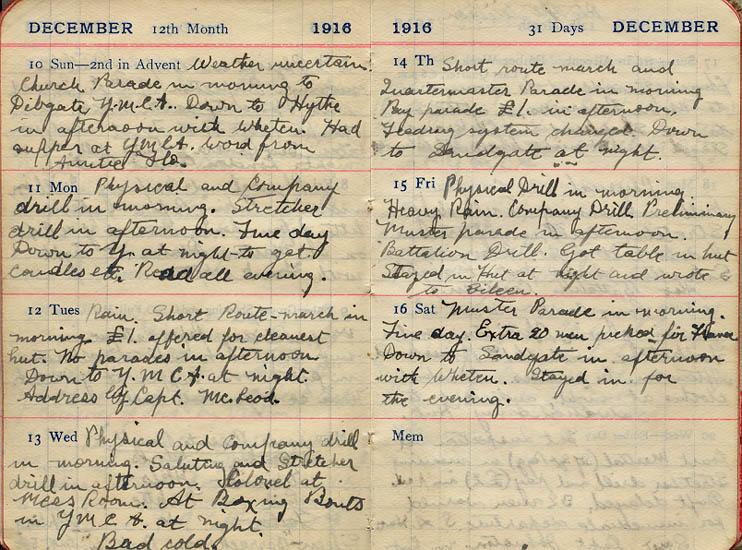 DECEMBER 12th Month 1916
10 Sun—2nd in Advent Weather uncertain
Church Parade in morning to
Dibgate Y.M.C.A. Down to Hythe
in afternoon with Wheten. Had
supper at Y.M.C.A. Word from
Auntie Flo.
11 Mon Physical and Company
drill in morning. Stretcher
drill in afternoon. Fine day
Down to Y. at night to get
candles etc. Read all evening.
12 Tues Rain. Short Route-march in
morning. £1. offered for cleanest
hut. No parades in afternoon
Down to Y.M.C.A. at night.
Address by Capt. McLeod.
13 Wed Physical and Company drill
in morning. Saluting and Stretcher
drill in afternoon. Colonel at
Mess Room. At Boxing Bouts
in Y.M.C.A. at night.
"Bad cold.
1916 31 Days DECEMBER
14 Th Short route march and
Quartermaster Parade in morning
Pay parade £1. in afternoon.
Feeding system changed. Down
to Sandgate at night.
15 Fri Physical Drill in morning
Heavy Rain. Company Drill Preliminary
Muster parade in afternoon.
Battalion Drill. Got table in hut
Stayed in hut at night and wrote
to Eileen.
16 Sat Muster Parade in morning.
Fine day. Extra 20 men picked for France
Down to Sandgate in afternoon
with Wheten. Stayed in for
the evening.
Mem